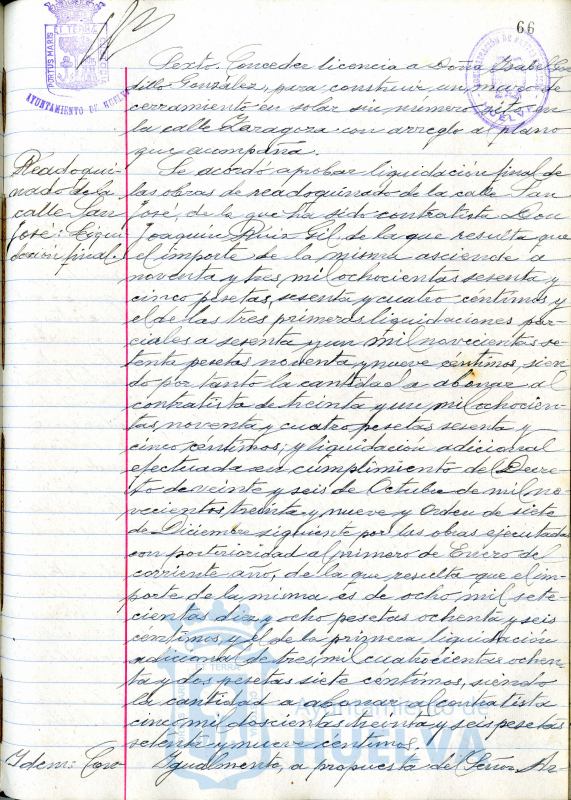 66
PORTUS MARIS
ET TERRÆ CUSTODIA
AYUNTAMIENTO DE HUELVA
HUELVA
Sexto. Conceder licencia a Doña Isabel Cas-
tillo González, para construir un muro de
cerramiento en solar sin número, sito en
la calle Zaragoza con arreglo al plano
que acompaña.
Readoqui-
nado de la
calle San
José: Liqui-
dación final.
Se acordó aprobar liquidación final de
las obras de readoquinado de la calle San
José, de la que ha sido contratista Don
Joaquín Ruiz Gil, de la que resulta que
el importe de la misma asciende a
noventa y tres mil ochocientas sesenta y
cinco pesetas, sesenta y cuatro céntimos y
el de las tres primeras liquidaciones par-
ciales a sesenta y un mil novecientas se-
tenta pesetas noventa y nueve céntimos, sien-
do por tanto la cantidad a abonar al
contratista de treinta y un mil ochocien-
tas, noventa y cuatro pesetas sesenta y
cinco céntimos; y liquidación adicional
efectuada en cumplimiento del Decre-
to de veinte y seis de Octubre de mil no-
vecientos, treinta y nueve y Orden de siete
de Diciembre siguiente por las obras ejecutadas
con posterioridad al primero de Enero del
corriente año, de la que resulta que el im-
porte de la misma es de ocho mil sete-
cientas diez y ocho pesetas ochenta y seis
centimos y el de la primera liquidación
adicional de tres mil cuatrocientas ochen-
ta y dos pesetas siete centimos, siendo
la cantidad a abonar al contratista
cinco mil doscientas treinta y seis pesetas
setenta y nueve centimos.
Ayuntamiento de
HUELVA
Idem: Caro
Igualmente, a propuesta del Señor Ar-